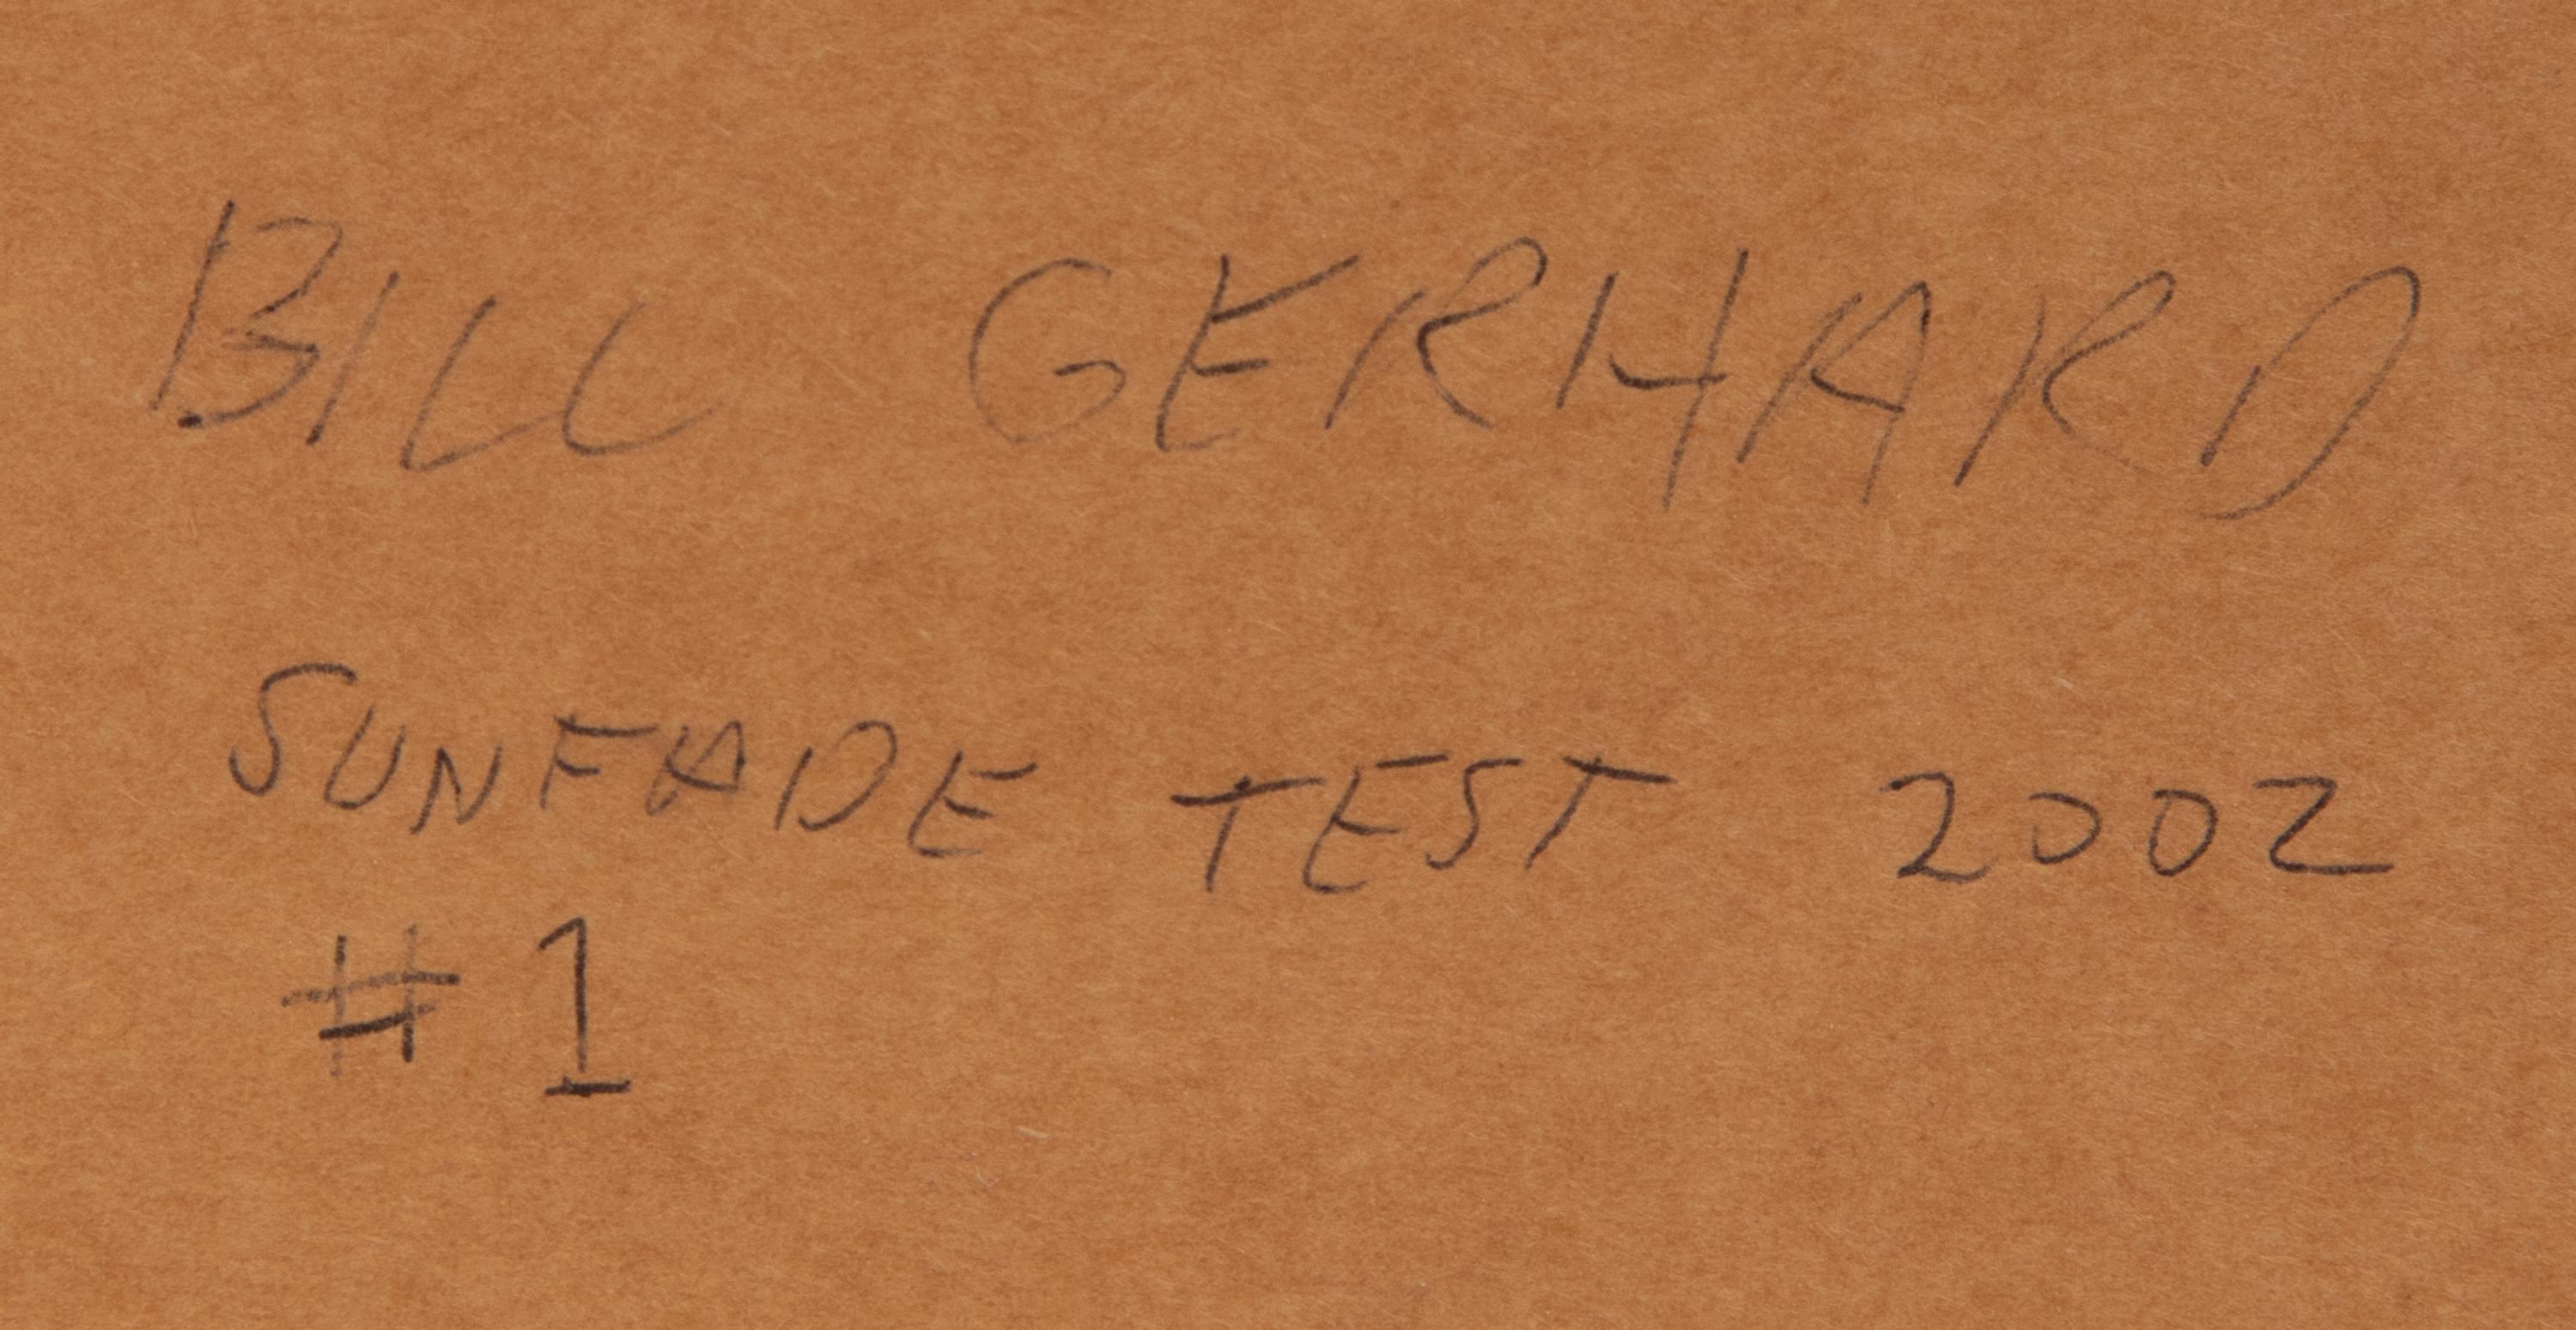 BILL GERHARD
SUNFADE TEST 2002
#1